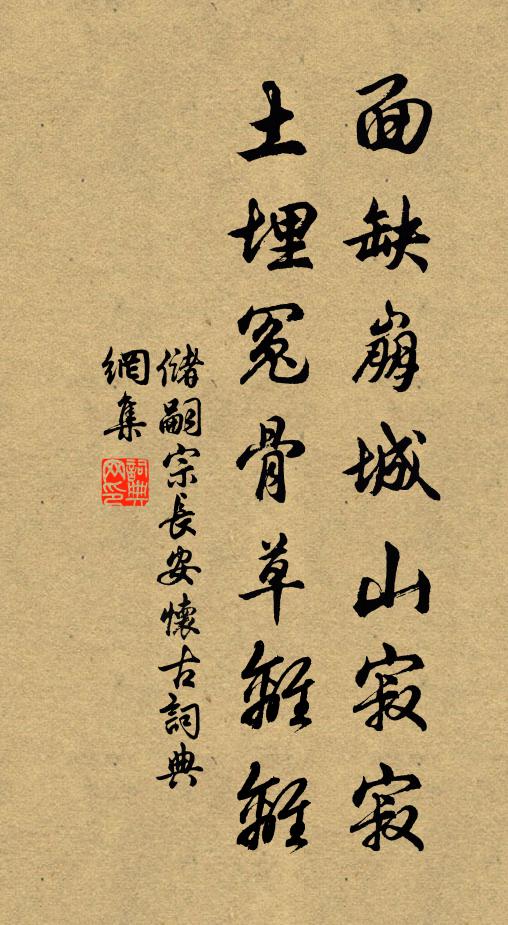 面缺崩城山寂寂
土埋冤骨草離離
儲嗣宗長安懷古詞典
網集
詞典
网印